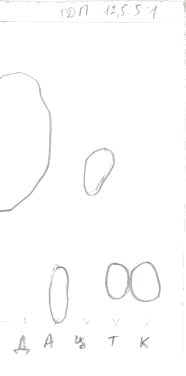 ТДП 12,5:5:1
Д А Ц Т К